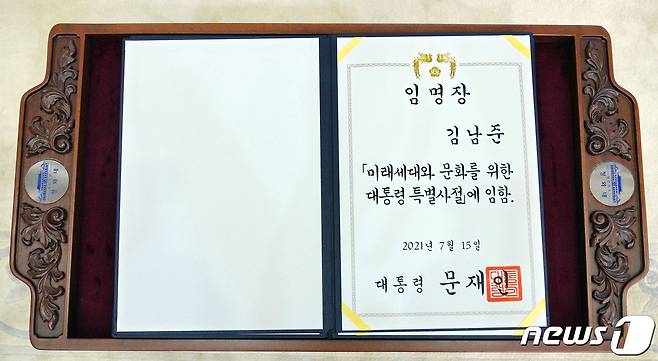 임명장
김남준
「미래세대와 문화를 위한
대통령 특별사절」에 임함.
2021년 7월 15일
대통령 문재인
청와대
news1